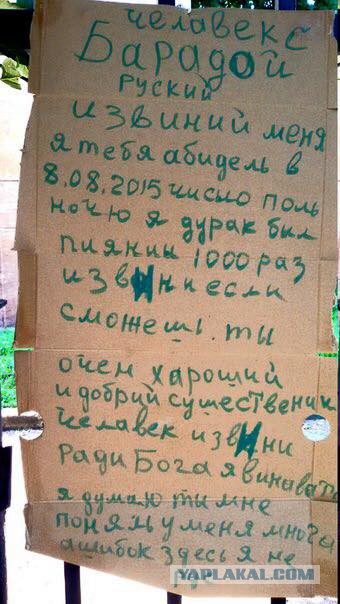 человекс
Барадой
руский
извиний меня
я тебя абидель в
8.08.2015 число поль
ночю я дурак был
пиянии 1000 раз
извини если
сможеш. ты
очен хароший
и добрий существения
человек извини
ради Бога я винават
я думаю ти мне
поняль у меня многа
ашибок здесь я не
YAPLAKAL.COM